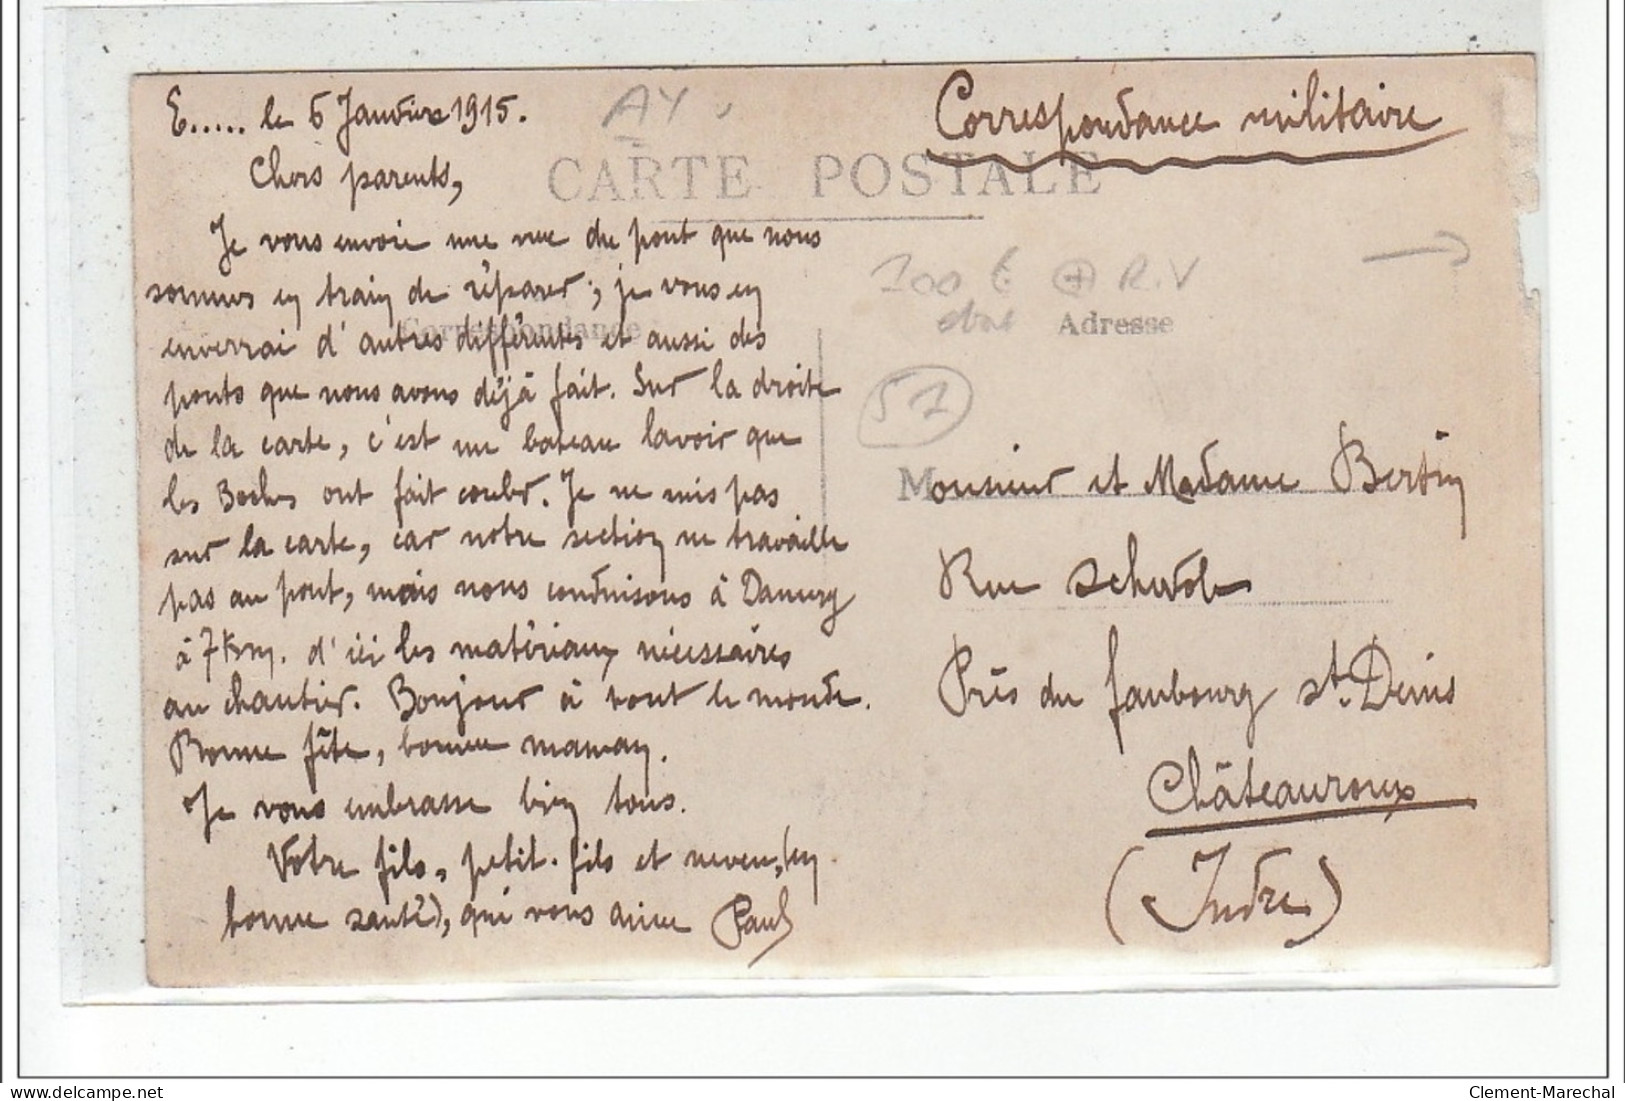 E..... le 6 Janvier 1915.
Chers parents,
Je vous envoie une vue du pont que nous
sommes en train de réparer; je vous en
enverrai d'autres différentes et aussi des
ponts que nous avons déjà fait. Sur la droite
de la carte, c'est un bateau lavoir que
les Boches ont fait couler. Je ne suis pas
sur la carte, car notre section ne travaille
pas au pont, mais nous conduisons à Damery
à 7km. d'ici les matériaux nécessaires
au chantier. Bonjour à tout le monde.
Bonne fête, bonne maman.
Je vous embrasse bien tous.
Votre fils, petit-fils et neveu, (en
bonne santé), qui vous aime Paul
AY
CARTE POSTALE
Correspondance
Correspondance militaire
100 € R.V
Adresse
51
Monsieur et Madame Bertin
Rue
Près du faubourg St. Denis
Châteauroux
(Indre)
delcampe.net
Clement-Marechal